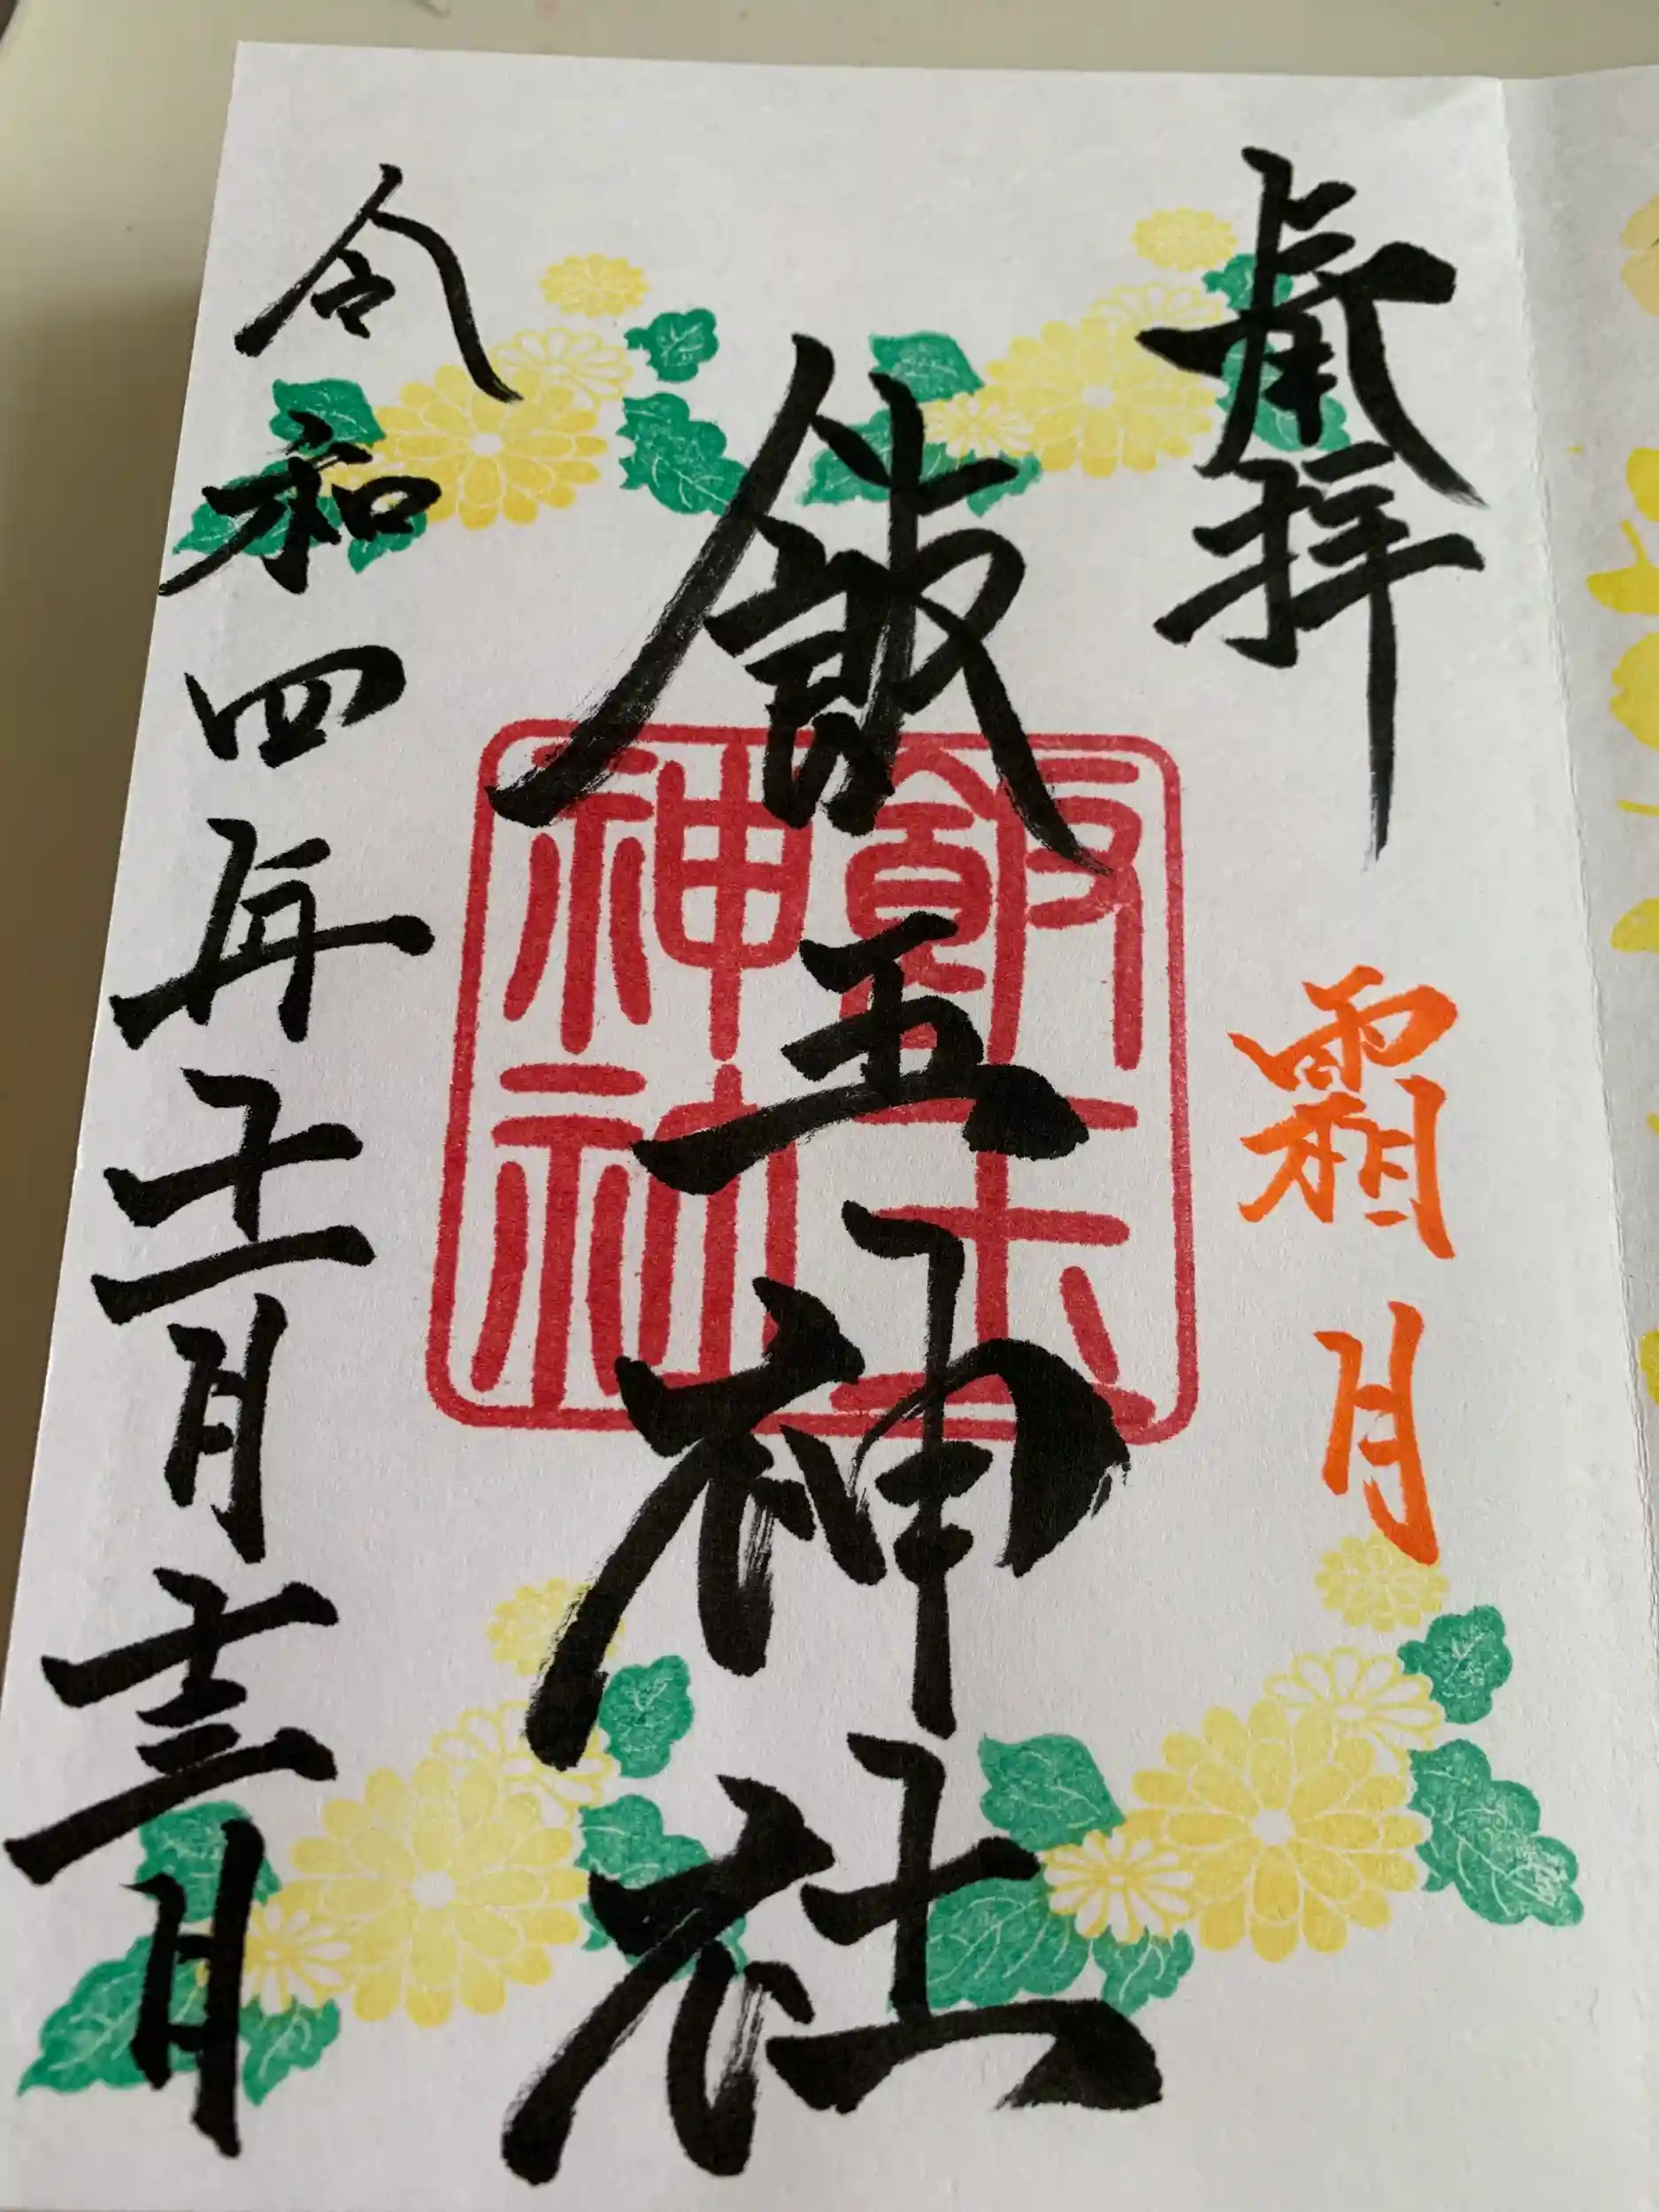 拝
霜月
飯玉神社
飯玉神社
令和四年十一月十三日